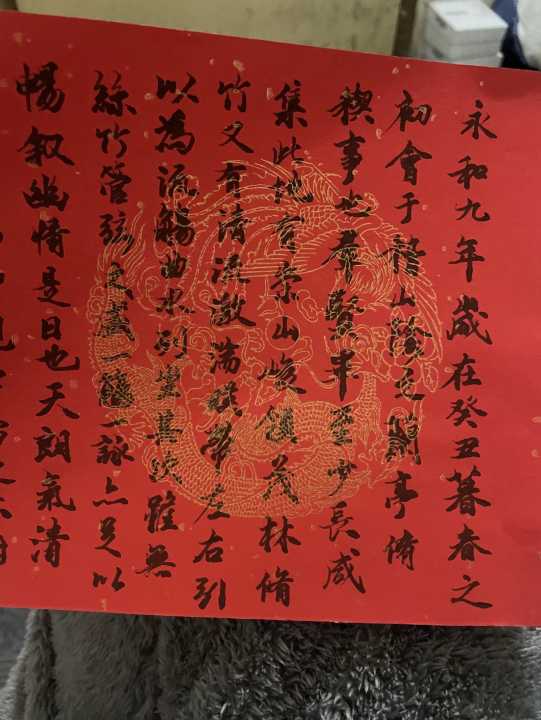 永和九年歲在癸丑暮春之
初會于稽山陰之蘭亭脩
禊事也羣賢畢至少長咸
集此地有崇山峻領茂林脩
竹又有清流激湍暎帶左右引
以為流觴曲水列坐其次雖無
絲竹管弦之盛一觴一詠亦足以
暢叙幽情是日也天朗氣清